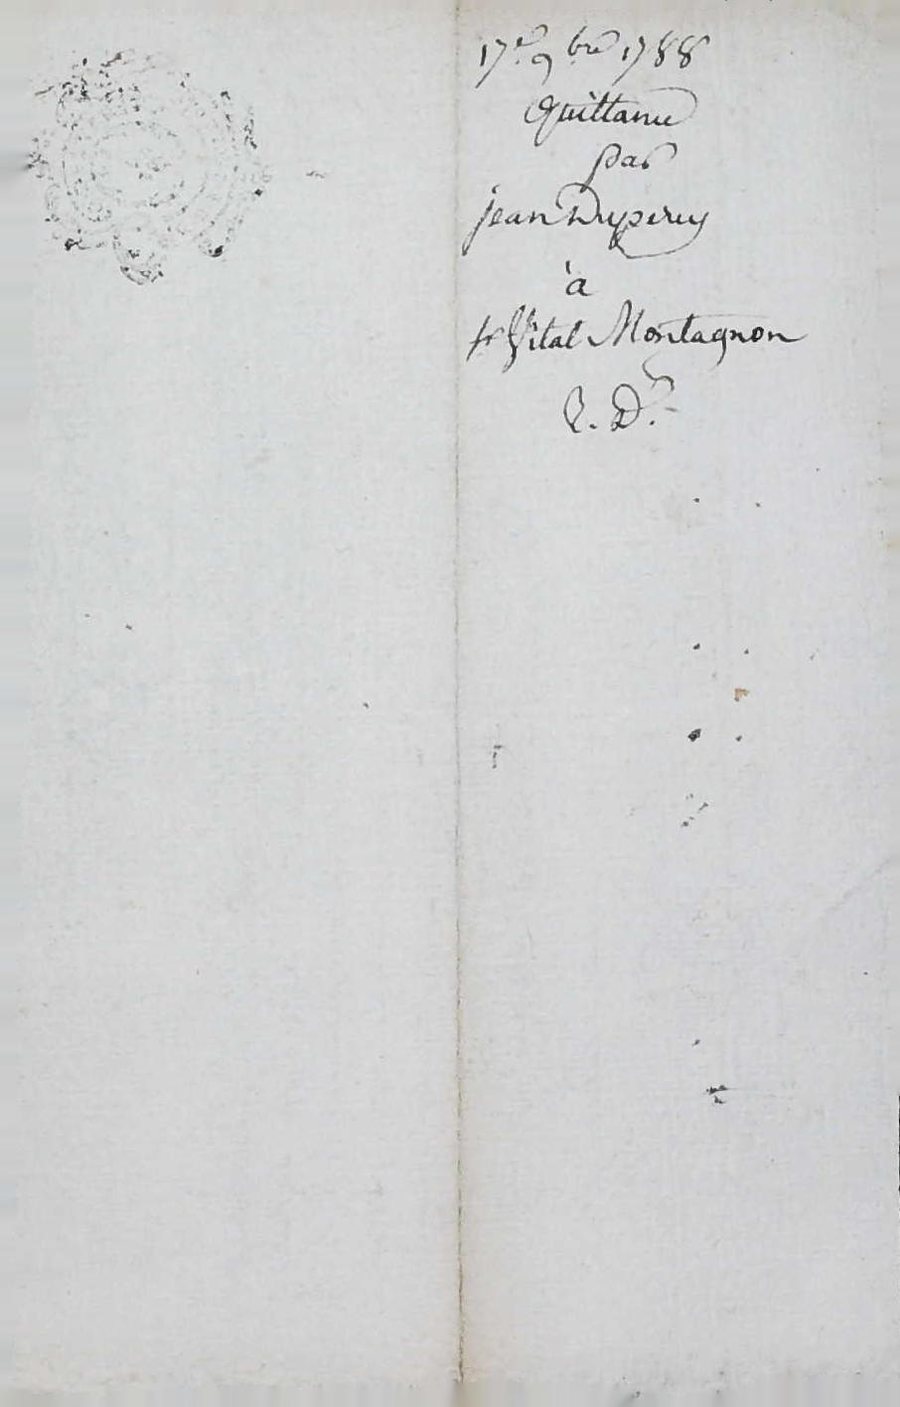 17e 9bre 1788
Quittance
par
jean Duperey
à
sr Vital Montagnon